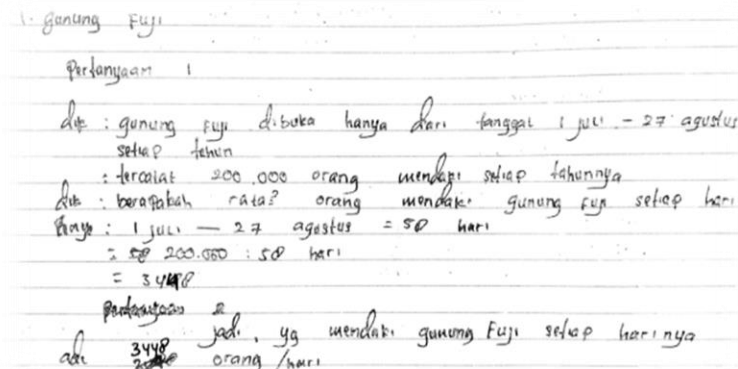 1. Gunung Fuji
Pertanyaan 1
dik : gunung Fuji dibuka hanya dari tanggal 1 juli - 27 agustus
setiap tahun
: tercatat 200.000 orang mendaki setiap tahunnya
dit : berapakah rata² orang mendaki gunung Fuji setiap hari
1 juli - 27 agustus = 58 hari
= 200.000 : 58 hari
= 3448
Pertanyaan 2
jadi, yg mendaki gunung Fuji setiap harinya
ada 3448 orang /hari